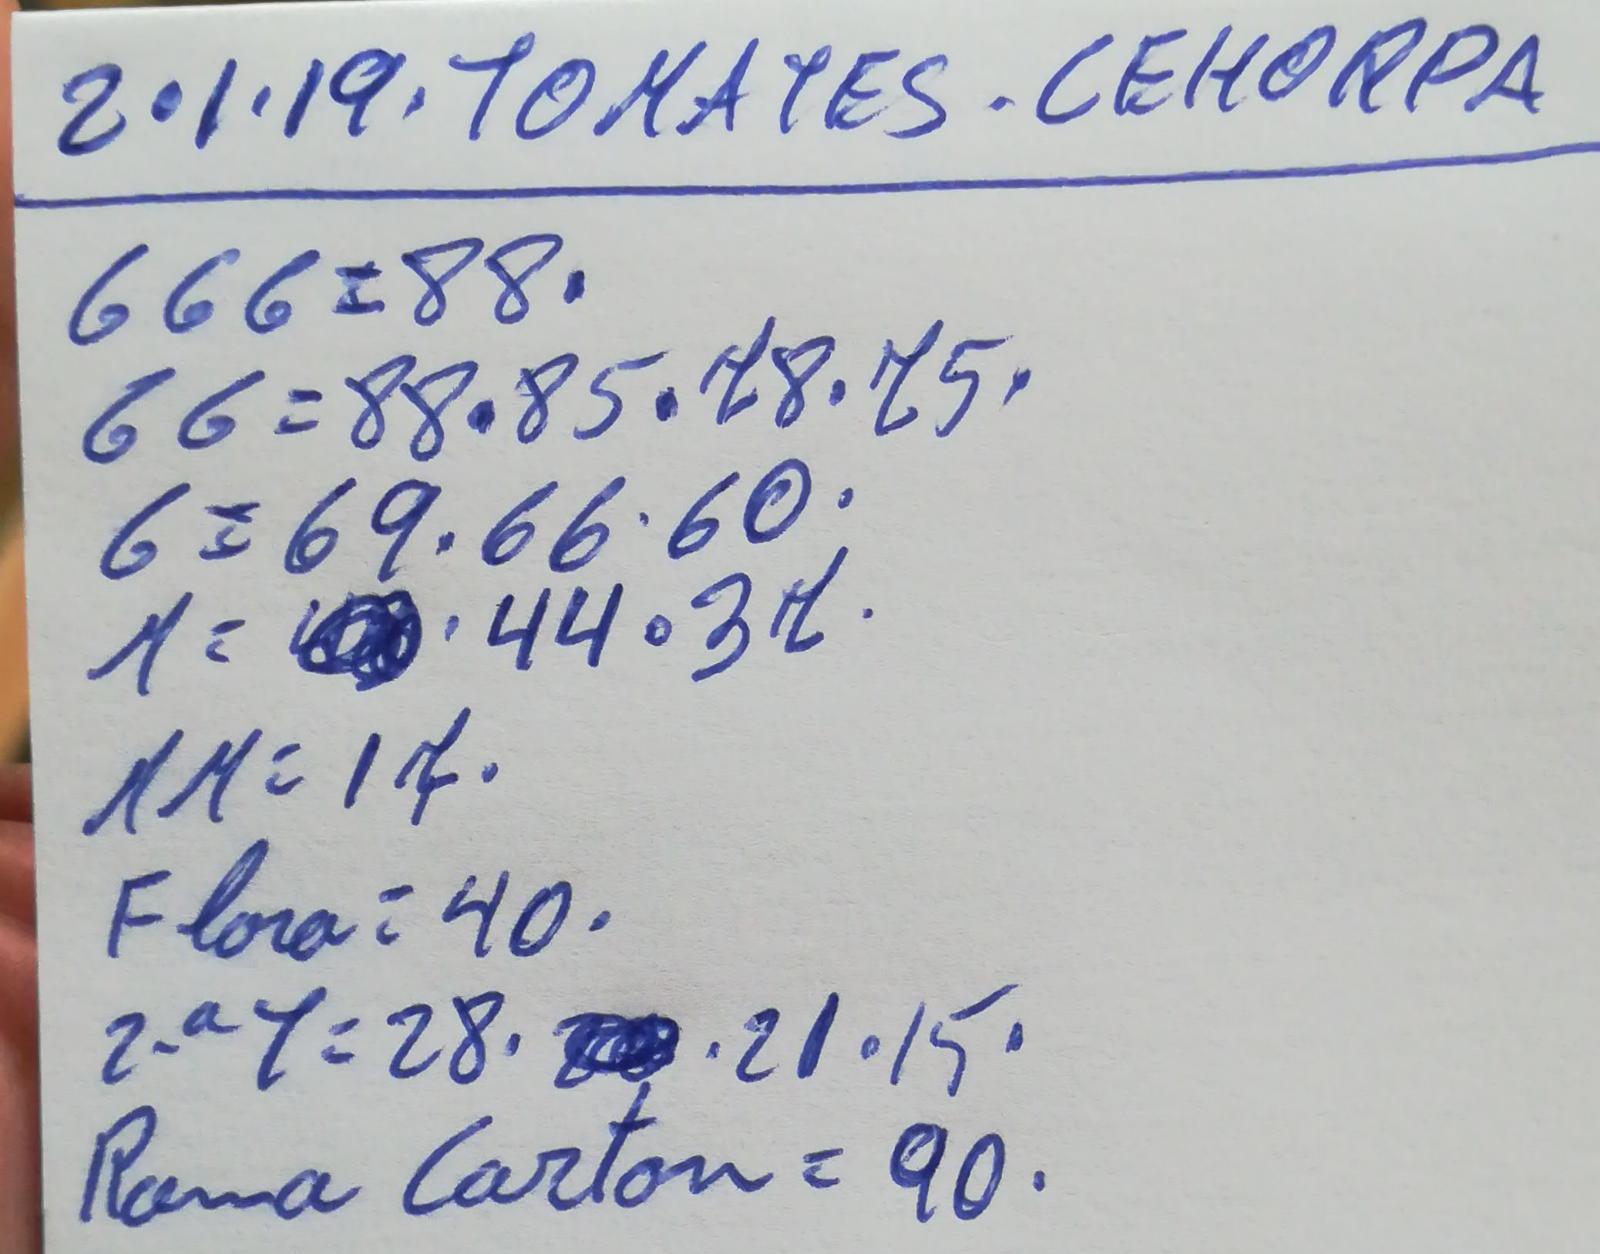 2.1.19. TOMATES. CEHORPA
666=88.
66=88.85.78.75.
6=69.66.60.
M= .44.37.
MM=17.
Flora=40.
2.ª T=28. .21.15.
Rama Carton=90.